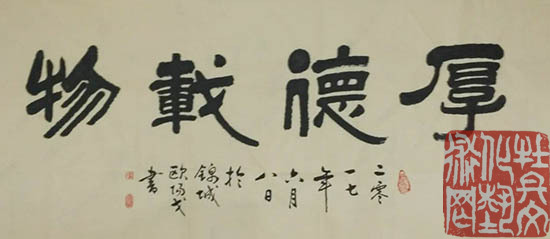 厚德載物
二零
一七
年
六月
八日
於
錦城
欧阳戈
書